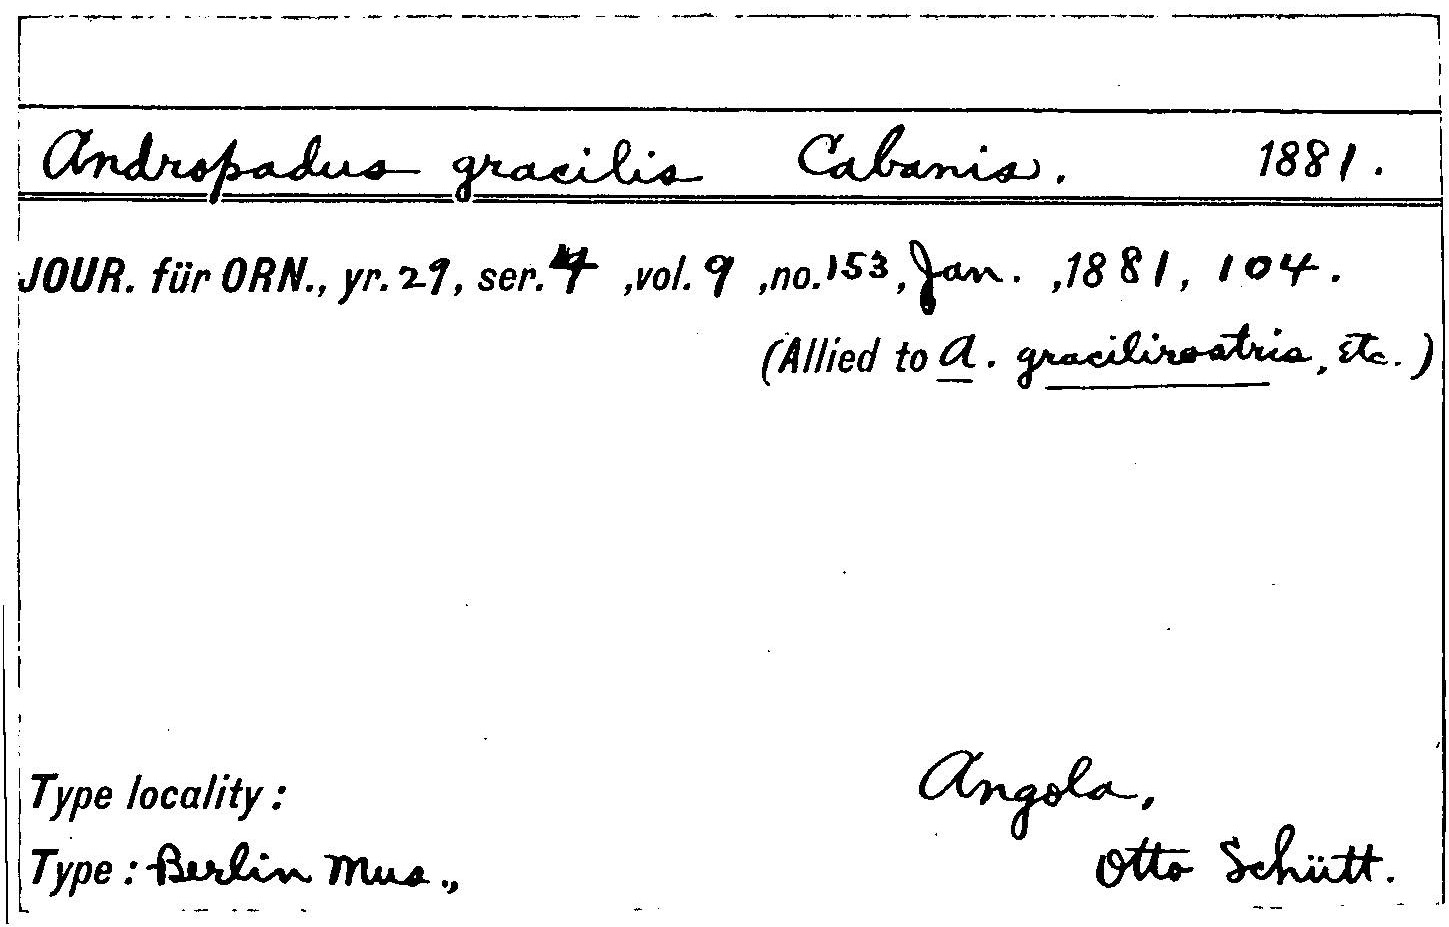 Andropadus gracilis Cabanis. 1881.
JOUR. für ORN., yr. 29, ser. 4 ,vol. 9 ,no. 153, Jan. ,1881, 104.
(Allied to A. gracilirostris, etc.)
Type locality: Angola,
Type: Berlin Mus., Otto Schütt.